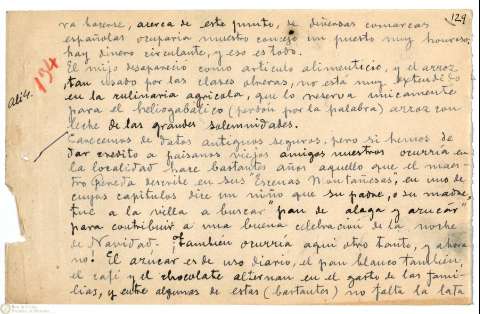 129
ra hacerse, acerca de este punto, de diversas comarcas
españolas ocuparia nuestro concejo un puesto muy honroso;
hay dinero circulante, y eso es todo.
El mijo desapareció como articulo alimenticio, y el arroz,
tan usado por las clases obreras, no está muy extendido
en la culinaria agricola, que lo reserva unicamente
para el heliogabálico (perdón por la palabra) arroz con
leche de las grandes solemnidades.
Carecemos de datos antiguos seguros, pero si hemos de
dar credito a paisanos viejos amigos nuestros ocurria en
la localidad hace bastantes años aquello que el maes-
tro Pereda describe en sus "Escenas Montañesas", en uno de
cuyos capitulos dice un niño que su padre, o su madre,
fué a la villa a buscar "pan de alaga y azucár"
para contribuir a una buena celebracion de la noche
de Navidad. También ocurria aqui otro tanto, y ahora
no! El azúcar es de uso diario, el pan blanco también,
el café y el chocolate alternan en el gasto de las fami-
lias, y entre algunas de estas (bastantes) no falta la lata
Ali 4.
134